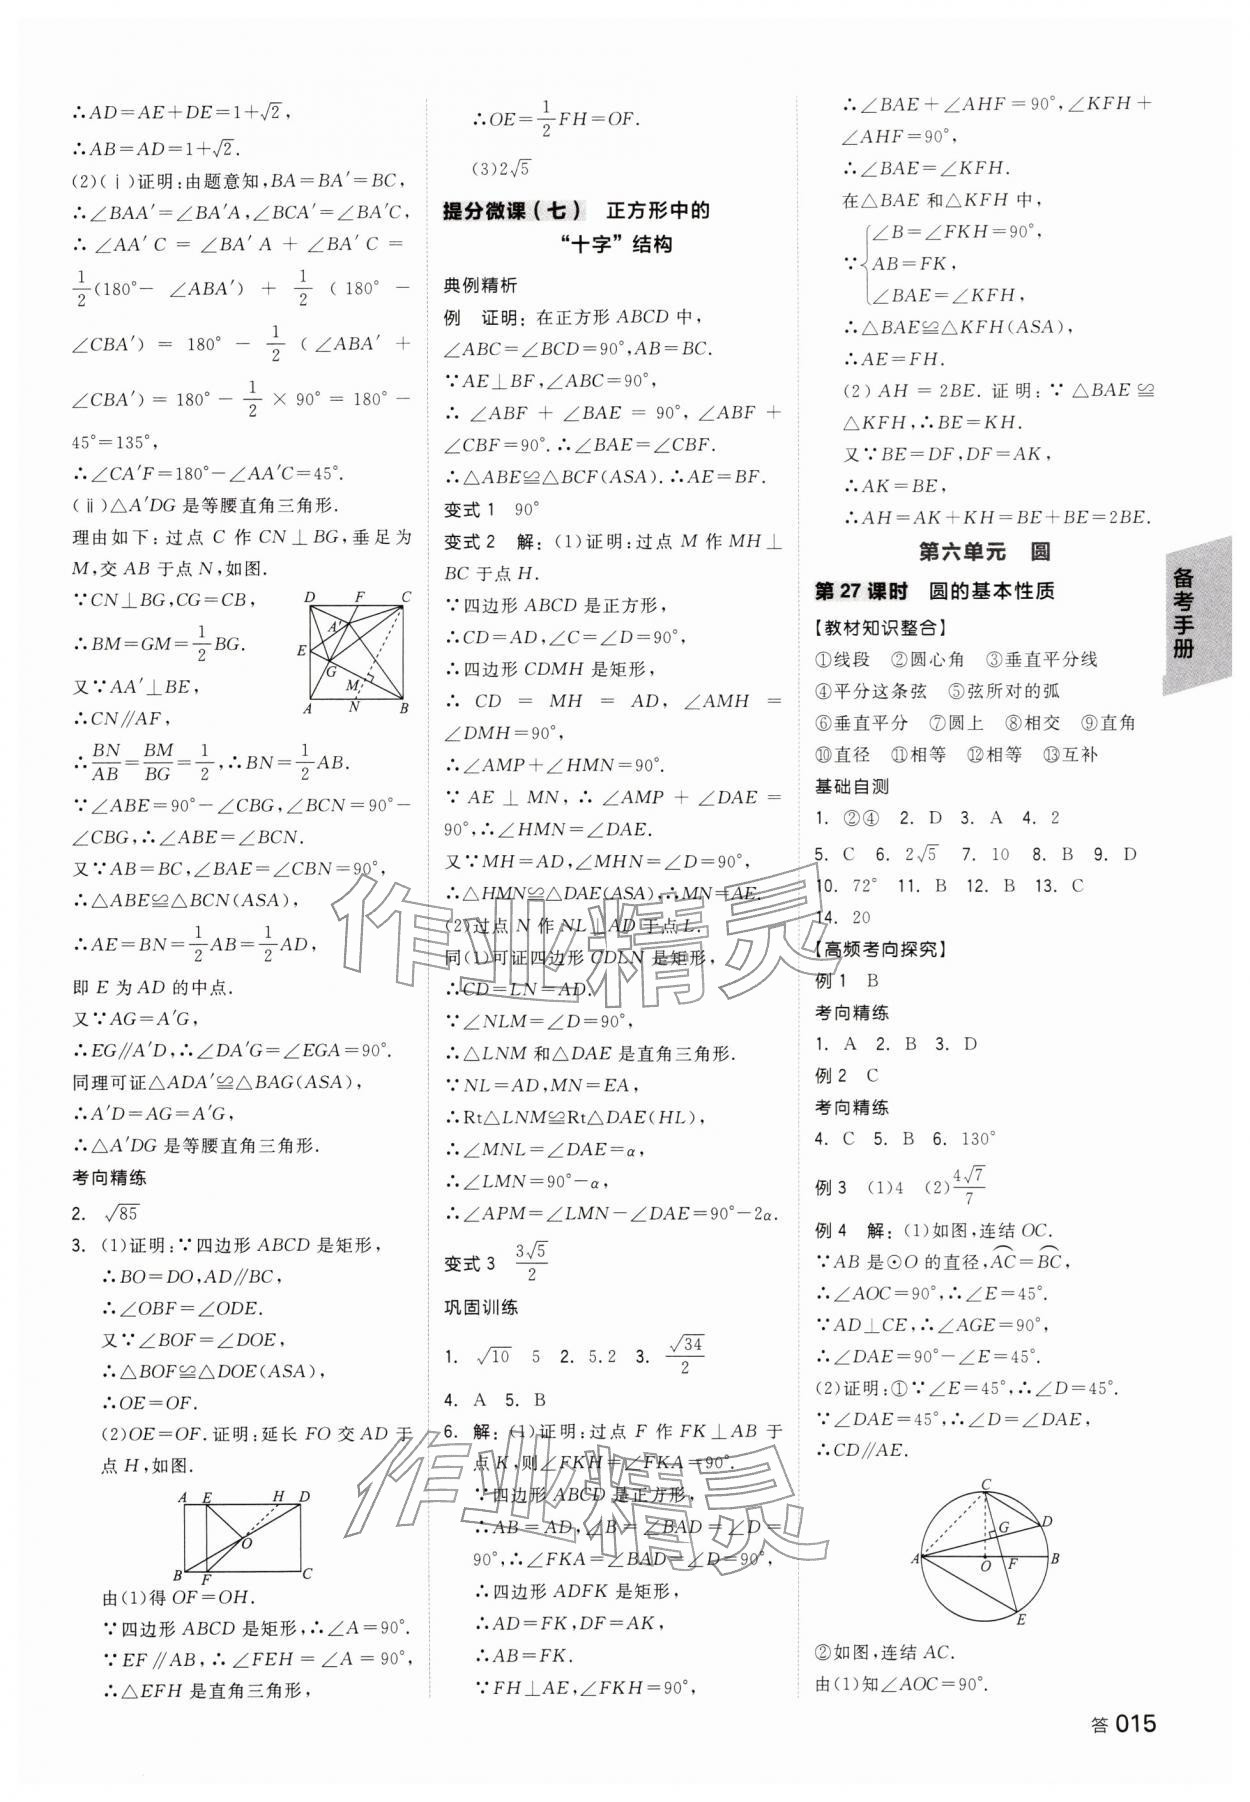 ∴AD=AE+DE=1+√2,
∴AB=AD=1+√2.
(2)(ⅰ)证明:由题意知,BA=BA′=BC,
∴∠BAA′=∠BA′A,∠BCA′=∠BA′C,
∴∠AA′C=∠BA′A+∠BA′C=
1/2(180°-∠ABA′)+1/2(180°-
∠CBA′)=180°-1/2(∠ABA′+
∠CBA′)=180°-1/2×90°=180°-
45°=135°,
∴∠CA′F=180°-∠AA′C=45°.
(ⅱ)△A′DG是等腰直角三角形.
理由如下:过点C作CN⊥BG,垂足为
M,交AB于点N,如图.
∵CN⊥BG,CG=CB,
∴BM=GM=1/2BG.
又∵AA′⊥BE,
∴CN∥AF,
∴BN/AB=BM/BG=1/2,∴BN=1/2AB.
D F C
A′
E
G
M
A N B
∵∠ABE=90°-∠CBG,∠BCN=90°-
∠CBG,∴∠ABE=∠BCN.
又∵AB=BC,∠BAE=∠CBN=90°,
∴△ABE≌△BCN(ASA),
∴AE=BN=1/2AB=1/2AD,
即E为AD的中点.
又∵AG=A′G,
∴EG∥A′D,∴∠DA′G=∠EGA=90°.
同理可证△ADA′≌△BAG(ASA),
∴A′D=AG=A′G,
∴△A′DG是等腰直角三角形.
考向精练
2. √85
3. (1)证明:∵四边形ABCD是矩形,
∴BO=DO,AD∥BC,
∴∠OBF=∠ODE.
又∵∠BOF=∠DOE,
∴△BOF≌△DOE(ASA),
∴OE=OF.
(2)OE=OF.证明:延长FO交AD于
点H,如图.
A E H D
O
B F C
由(1)得OF=OH.
∵四边形ABCD是矩形,∴∠A=90°.
∵EF∥AB,∴∠FEH=∠A=90°,
∴△EFH是直角三角形,
∴OE=1/2FH=OF.
(3)2√5
提分微课(七) 正方形中的
“十字”结构
典例精析
例 证明:在正方形ABCD中,
∠ABC=∠BCD=90°,AB=BC.
∵AE⊥BF,∠ABC=90°,
∴∠ABF+∠BAE=90°,∠ABF+
∠CBF=90°.∴∠BAE=∠CBF.
∴△ABE≌△BCF(ASA).∴AE=BF.
变式1 90°
变式2 解:(1)证明:过点M作MH⊥
BC于点H.
∵四边形ABCD是正方形,
∴CD=AD,∠C=∠D=90°,
∴四边形CDMH是矩形,
∴CD=MH=AD,∠AMH=
∠DMH=90°,
∴∠AMP+∠HMN=90°.
∵AE⊥MN,∴∠AMP+∠DAE=
90°,∴∠HMN=∠DAE.
又∵MH=AD,∠MHN=∠D=90°,
∴△HMN≌△DAE(ASA),∴MN=AE.
(2)过点N作NL⊥AD于点L.
同(1)可证四边形CDLN是矩形,
∴CD=LN=AD.
∵∠NLM=∠D=90°,
∴△LNM和△DAE是直角三角形.
∵NL=AD,MN=EA,
∴Rt△LNM≌Rt△DAE(HL),
∴∠MNL=∠DAE=α,
∴∠LMN=90°-α,
∴∠APM=∠LMN-∠DAE=90°-2α.
变式3 3√5/2
巩固训练
1. √10 5 2. 5.2 3. √34/2
4. A 5. B
6. 解:(1)证明:过点F作FK⊥AB于
点K,则∠FKH=∠FKA=90°.
∵四边形ABCD是正方形,
∴AB=AD,∠B=∠BAD=∠D=
90°,∴∠FKA=∠BAD=∠D=90°,
∴四边形ADFK是矩形,
∴AD=FK,DF=AK,
∴AB=FK.
∵FH⊥AE,∠FKH=90°,
∴∠BAE+∠AHF=90°,∠KFH+
∠AHF=90°,
∴∠BAE=∠KFH.
在△BAE和△KFH中,
∠B=∠FKH=90°,
∵{AB=FK,
∠BAE=∠KFH,
∴△BAE≌△KFH(ASA),
∴AE=FH.
(2)AH=2BE.证明:∵△BAE≌
△KFH,∴BE=KH.
又∵BE=DF,DF=AK,
∴AK=BE,
∴AH=AK+KH=BE+BE=2BE.
第六单元 圆
第27课时 圆的基本性质
【教材知识整合】
①线段 ②圆心角 ③垂直平分线
④平分这条弦 ⑤弦所对的弧
⑥垂直平分 ⑦圆上 ⑧相交 ⑨直角
⑩直径 ⑪相等 ⑫相等 ⑬互补
基础自测
1. ②④ 2. D 3. A 4. 2
5. C 6. 2√5 7. 10 8. B 9. D
10. 72° 11. B 12. B 13. C
14. 20
【高频考向探究】
例1 B
考向精练
1. A 2. B 3. D
例2 C
考向精练
4. C 5. B 6. 130°
例3 (1)4 (2)4√7/7
例4 解:(1)如图,连结OC.
∵AB是⊙O的直径,AC⌒=BC⌒,
∴∠AOC=90°,∴∠E=45°.
∵AD⊥CE,∴∠AGE=90°,
∴∠DAE=90°-∠E=45°.
(2)证明:①∵∠E=45°,∴∠D=45°.
∵∠DAE=45°,∴∠D=∠DAE,
∴CD∥AE.
C
G D
A O F B
E
②如图,连结AC.
由(1)知∠AOC=90°.
备考手册
答 015
作业精灵
作业精灵